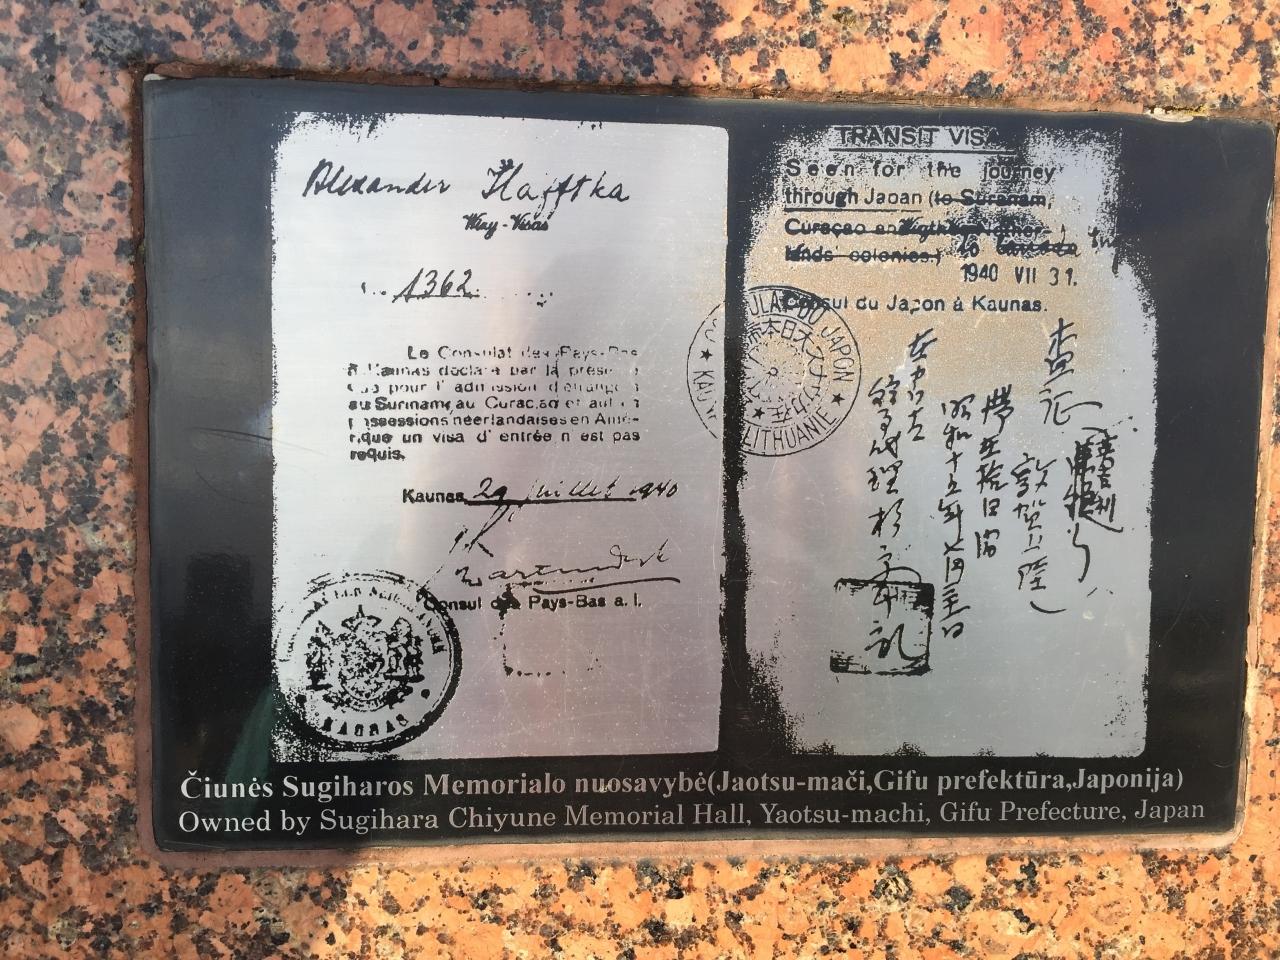 Alexander Hafftka
1362
Le Consulat des Pays-Bas
à Kaunas déclare par la présente
que pour l'admission d'étrangers
au Suriname, au Curaçao et autres
possessions néerlandaises en Amé-
rique un visa d'entrée n'est pas
requis.
Kaunas, 29 Juillet 1940
Consul des Pays-Bas a. i.
KAUNAS
TRANSIT VISA
Seen for the journey
through Japan (to Suranam,
Curaçao and other Nether-
lands' colonies.) to Canada
1940 VII 31.
Consul du Japon à Kaunas.
CONSULAT DU JAPON
KAUNAS
LITHUANIE
大日本帝国
査証
敦賀上陸
昭和十五年七月三十一日
領事代理杉原千畝
Čiunės Sugiharos Memorialo nuosavybė(Jaotsu-mači,Gifu prefektūra,Japonija)
Owned by Sugihara Chiyune Memorial Hall, Yaotsu-machi, Gifu Prefecture, Japan